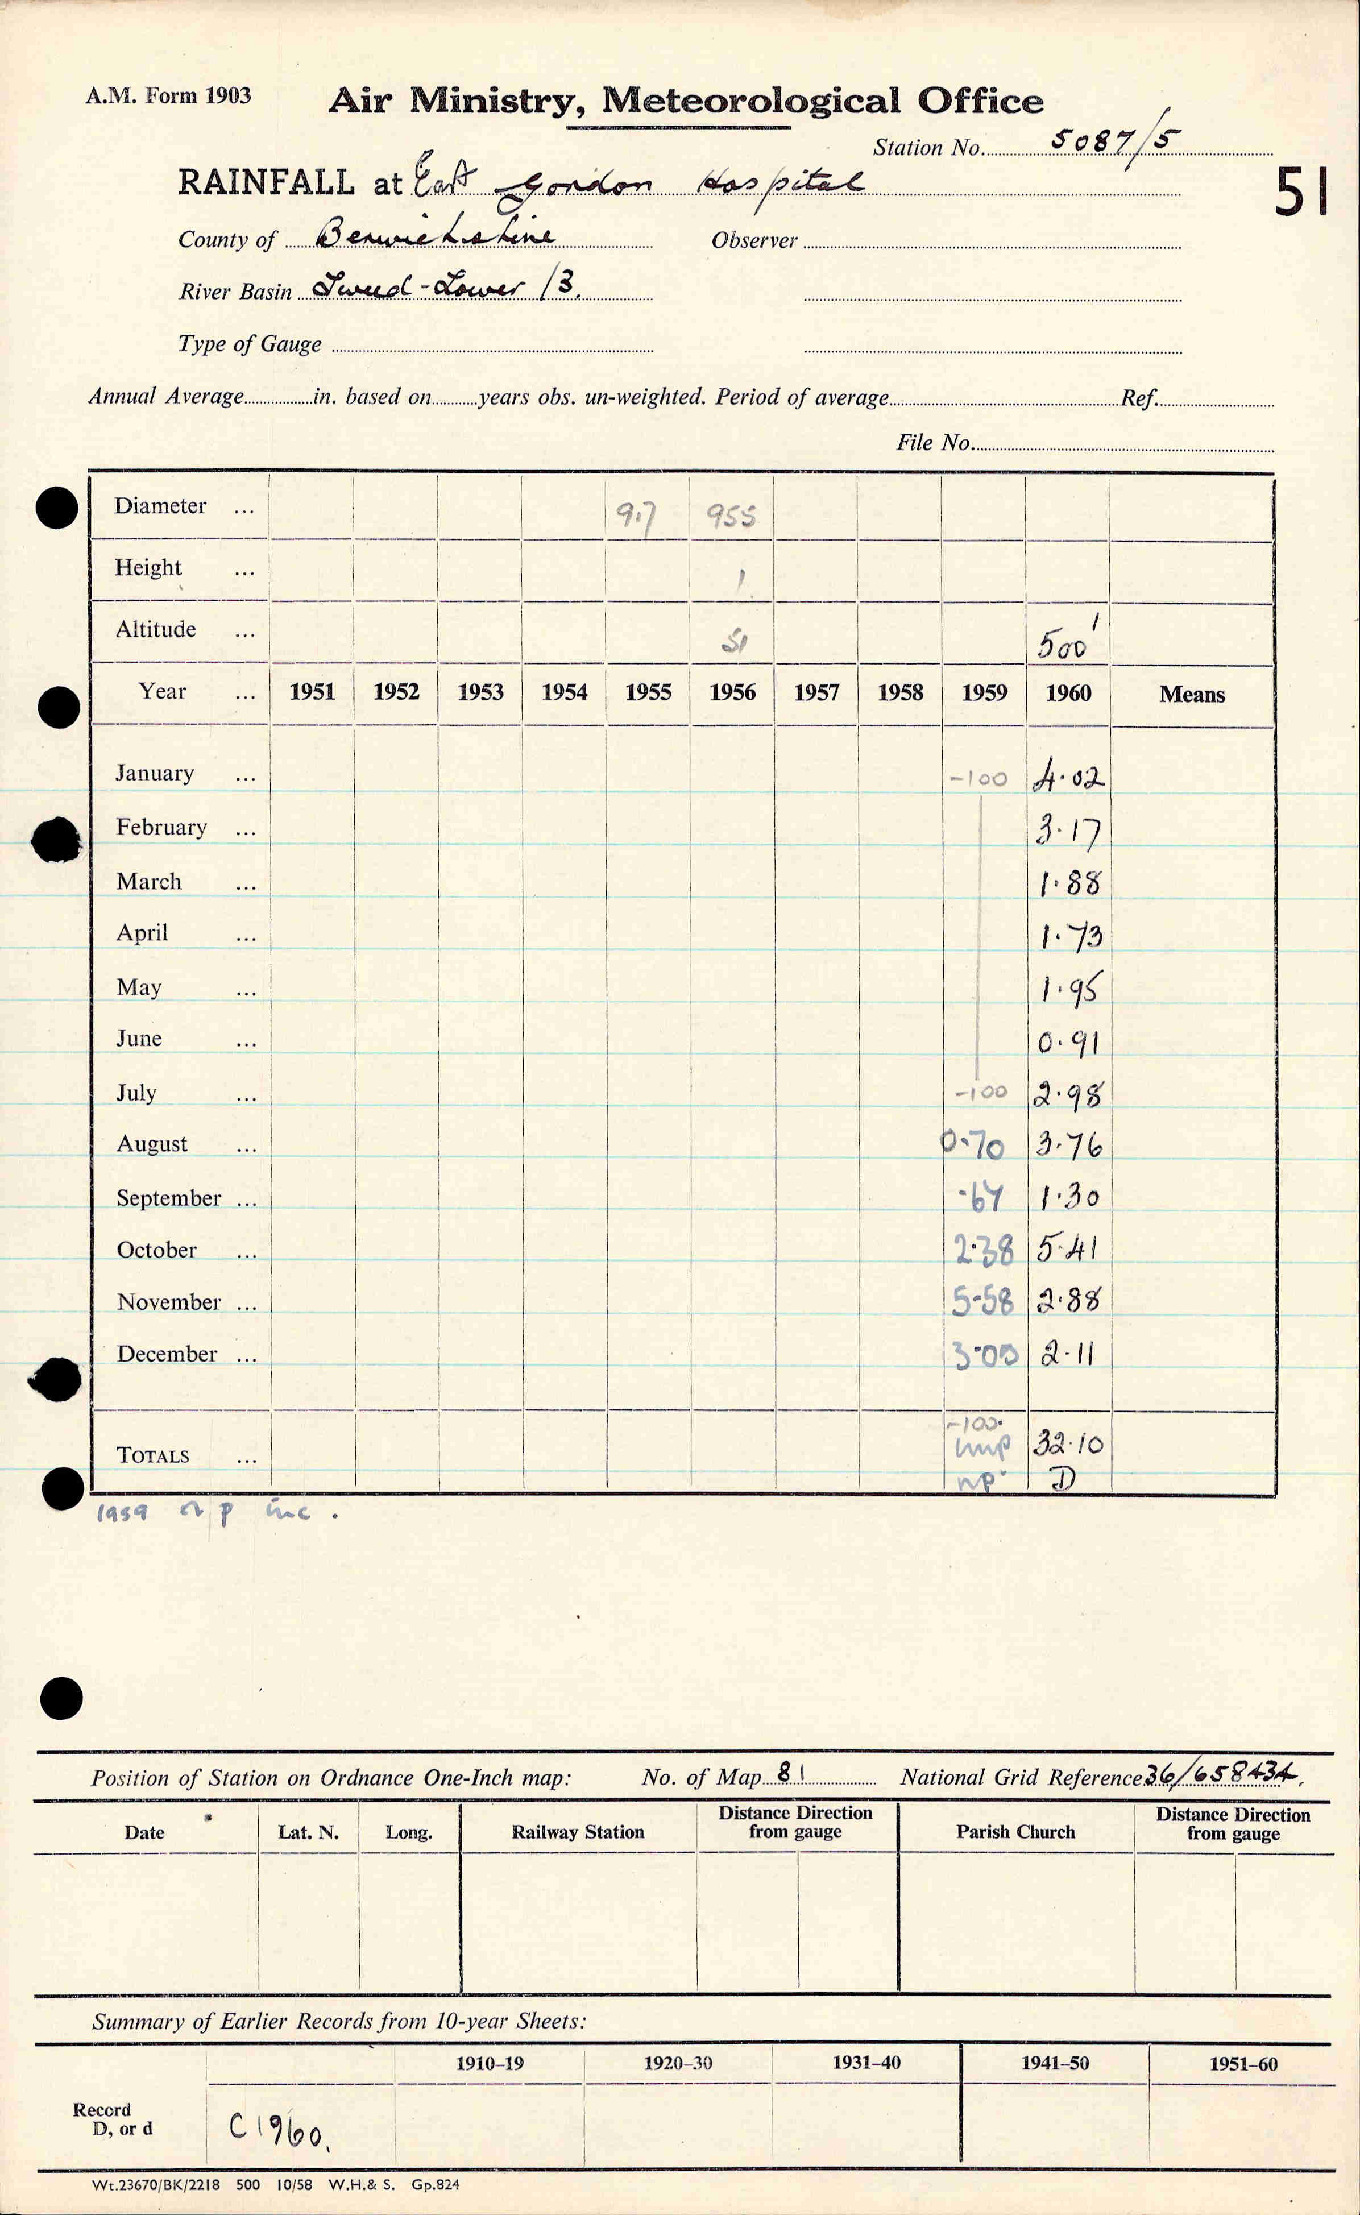 A.M. Form 1903 Air Ministry, Meteorological Office
Station No. 5087/5
RAINFALL at East Gordon Hospital
51
County of Berwickshire Observer
River Basin Tweed-Lower /3.
Type of Gauge
Annual Average in. based on years obs. un-weighted. Period of average Ref.
File No.
Diameter ... 9.7 955
Height ... 1
Altitude ... 51 500'
Year ... 1951 1952 1953 1954 1955 1956 1957 1958 1959 1960 Means
January ... -100 4.02
February ... 3.17
March ... 1.88
April ... 1.73
May ... 1.95
June ... 0.91
July ... -100 2.98
August ... 0.70 3.76
September ... .67 1.30
October ... 2.38 5.41
November ... 5.58 2.88
December ... 2.11
-100.
TOTALS ... 32.10
np D
1959 inc.
Position of Station on Ordnance One-Inch map: No. of Map 81 National Grid Reference 36/658434.
Date Lat. N. Long. Railway Station Distance Direction from gauge Parish Church Distance Direction from gauge
Summary of Earlier Records from 10-year Sheets:
1910–19 1920–30 1931–40 1941–50 1951–60
Record
D, or d C1960.
Wt.23670/BK/2218 500 10/58 W.H.& S. Gp.824